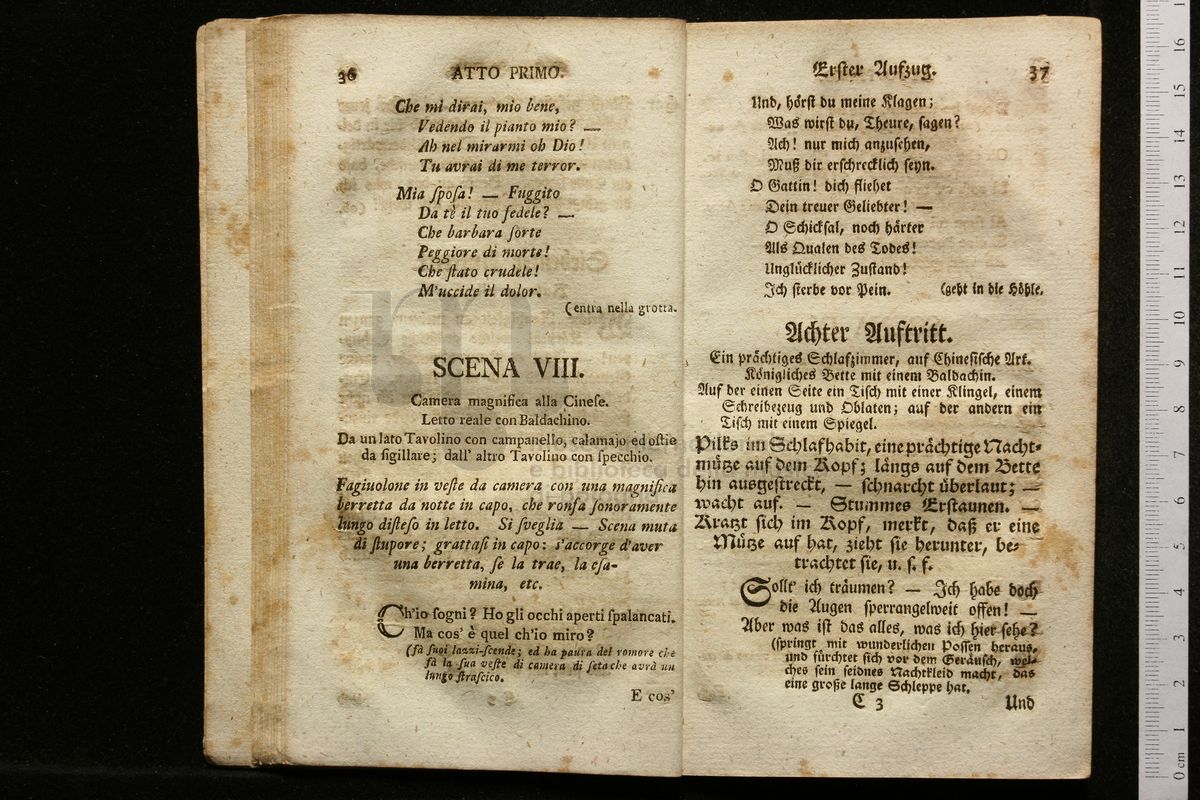 36 ATTO PRIMO.
Che mi dirai, mio bene,
Vedendo il pianto mio? —
Ah nel mirarmi oh Dio!
Tu avrai di me terror.
Mia ſpoſa! — Fuggito
Da tè il tuo fedele? —
Che barbara ſorte
Peggiore di morte!
Che ſtato crudele!
M'uccide il dolor.
(entra nella grotta.
SCENA VIII.
Camera magnifica alla Cineſe.
Letto reale con Baldachino.
Da un lato Tavolino con campanello, calamajo ed oſtie
da ſigillare; dall' altro Tavolino con ſpecchio.
Fagiuolone in veſte da camera con una magnifica
berretta da notte in capo, che ronſa ſonoramente
lungo diſteſo in letto. Si ſveglia — Scena muta
di ſtupore; grattaſi in capo: s'accorge d'aver
una berretta, ſe la trae, la eſa-
mina, etc.
Ch'io ſogni? Ho gli occhi aperti ſpalancati.
Ma cos' è quel ch'io miro?
(fà ſuoi lazzi-ſcende; ed ha paura del romore che
fà la ſua veſte di camera di ſeta che avrà un
lungo ſtraſcico.
E cos'
Erſter Aufzug. 37
Und, hörſt du meine Klagen;
Was wirſt du, Theure, ſagen?
Ach! nur mich anzuſehen,
Muß dir erſchrecklich ſeyn.
O Gattin! dich fliehet
Dein treuer Geliebter! —
O Schickſal, noch härter
Als Qualen des Todes!
Unglücklicher Zuſtand!
Ich ſterbe vor Pein. (geht in die Höhle.
Achter Auftritt.
Ein prächtiges Schlafzimmer, auf Chineſiſche Art.
Königliches Bette mit einem Baldachin.
Auf der einen Seite ein Tiſch mit einer Klingel, einem
Schreibezeug und Oblaten; auf der andern ein
Tiſch mit einem Spiegel.
Pilks im Schlafhabit, eine prächtige Nacht-
mütze auf dem Kopf; längs auf dem Bette
hin ausgeſtreckt, — ſchnarcht überlaut; —
wacht auf. — Stummes Erſtaunen. —
Kratzt ſich im Kopf, merkt, daß er eine
Mütze auf hat, zieht ſie herunter, be-
trachtet ſie, u. ſ. f.
Sollt' ich träumen? — Ich habe doch
die Augen ſperrangelweit offen! —
Aber was iſt das alles, was ich hier ſehe?
(ſpringt mit wunderlichen Poſſen heraus,
und fürchtet ſich vor dem Geräuſch, wel-
ches ſein ſeidnes Nachtkleid macht, das
eine große lange Schleppe hat.
C 3 Und